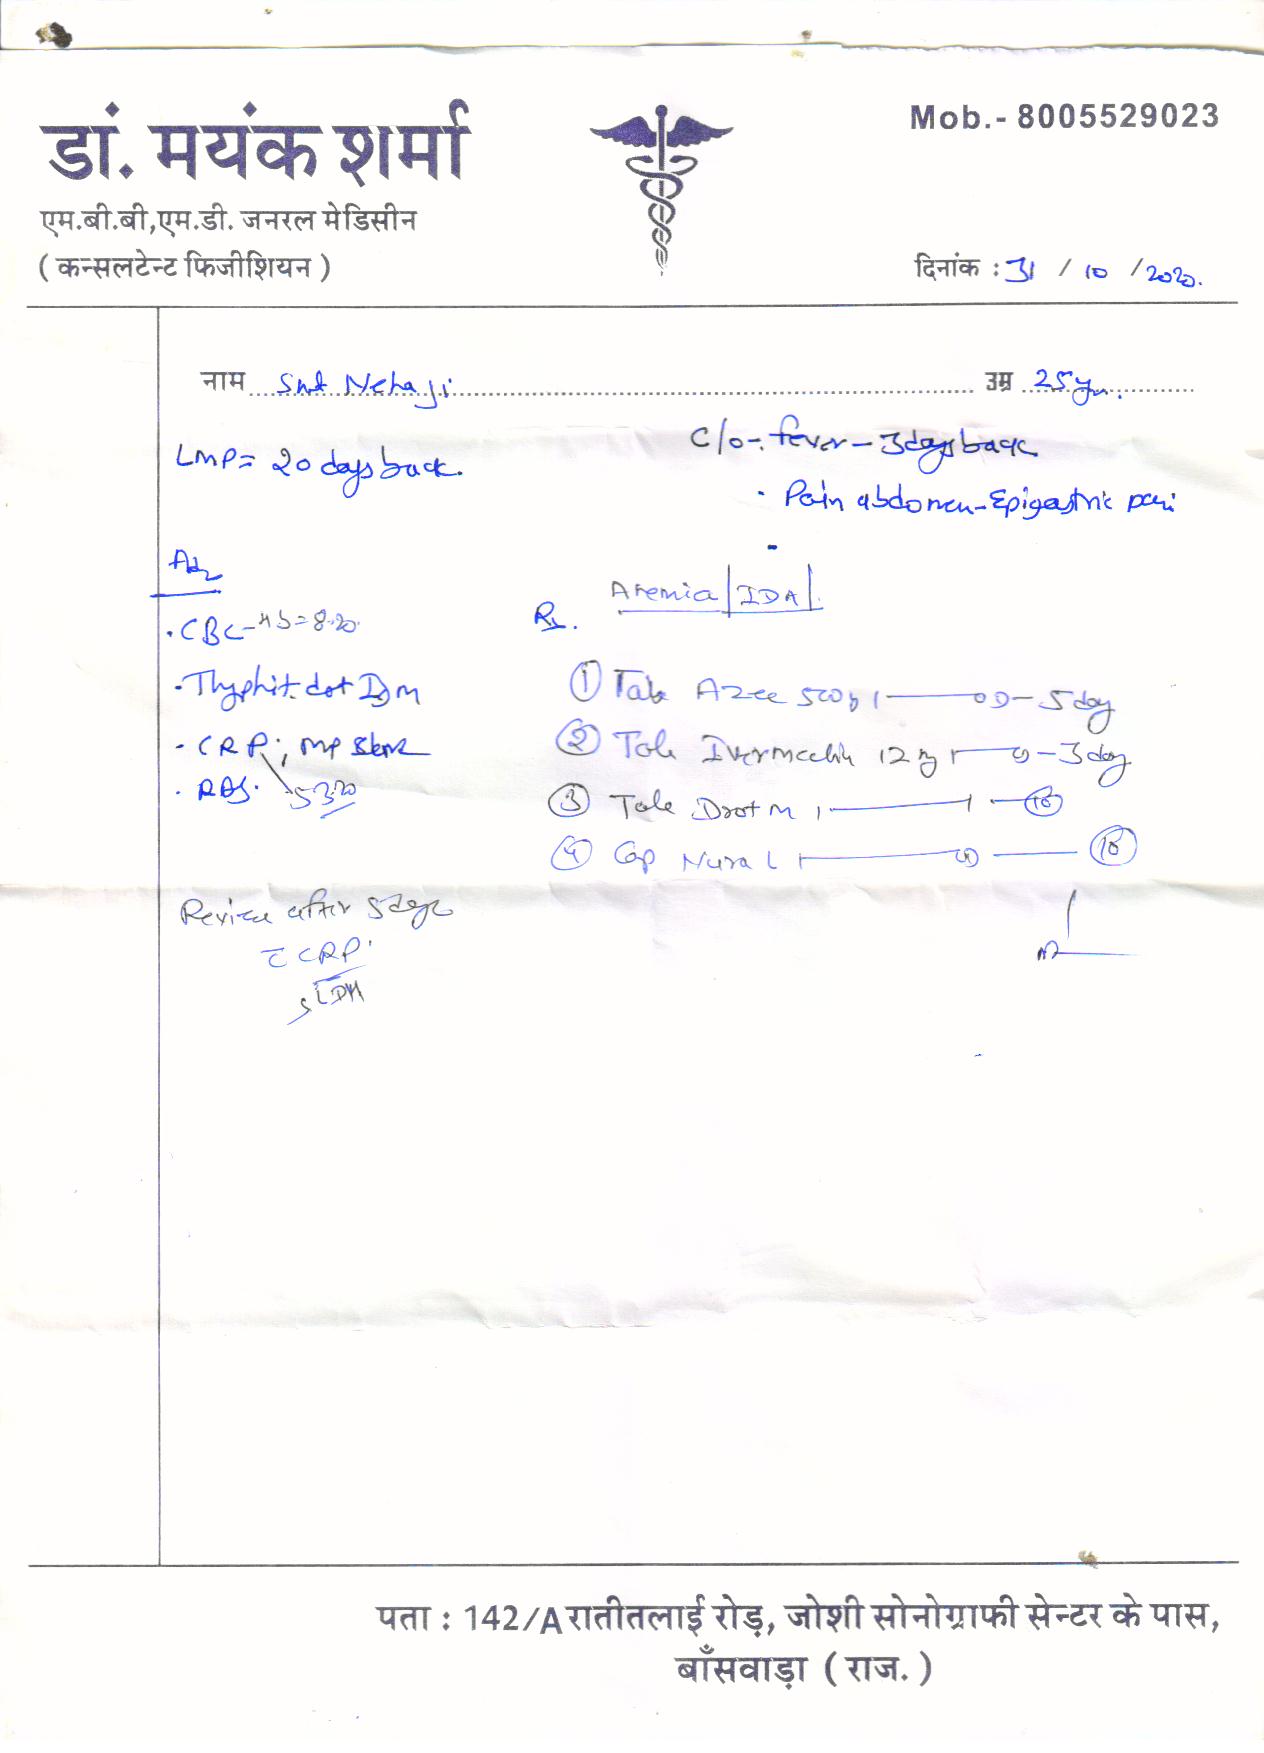 Mob.- 8005529023
डां. मयंक शर्मा
एम.बी.बी,एम.डी. जनरल मेडिसीन
( कन्सलटेन्ट फिजीशियन )
दिनांक : 31 / 10 / 2020.
नाम Smt Neha Ji उम्र 25yr.
C/o-. fever - 3days back
LMP = 20 days back.
· Pain abdomen - Epigastric pain
Adv
Anemia | IDA |
Rx.
· CBC - Hb = 8.20
① Tab Azee 500 1 OD - 5 day
· Thyphi dot IgM
② Tab Ivermectin 12 mg 1 - 3 day
· CRP ; MP
· RBS. 53.20
③ Tab Drot M 1 1 10
④ Cap L 1 10
Review after 5 days
c̄ CRP.
S LDH
पता : 142/A रातीतलाई रोड़, जोशी सोनोग्राफी सेन्टर के पास,
बाँसवाड़ा ( राज. )